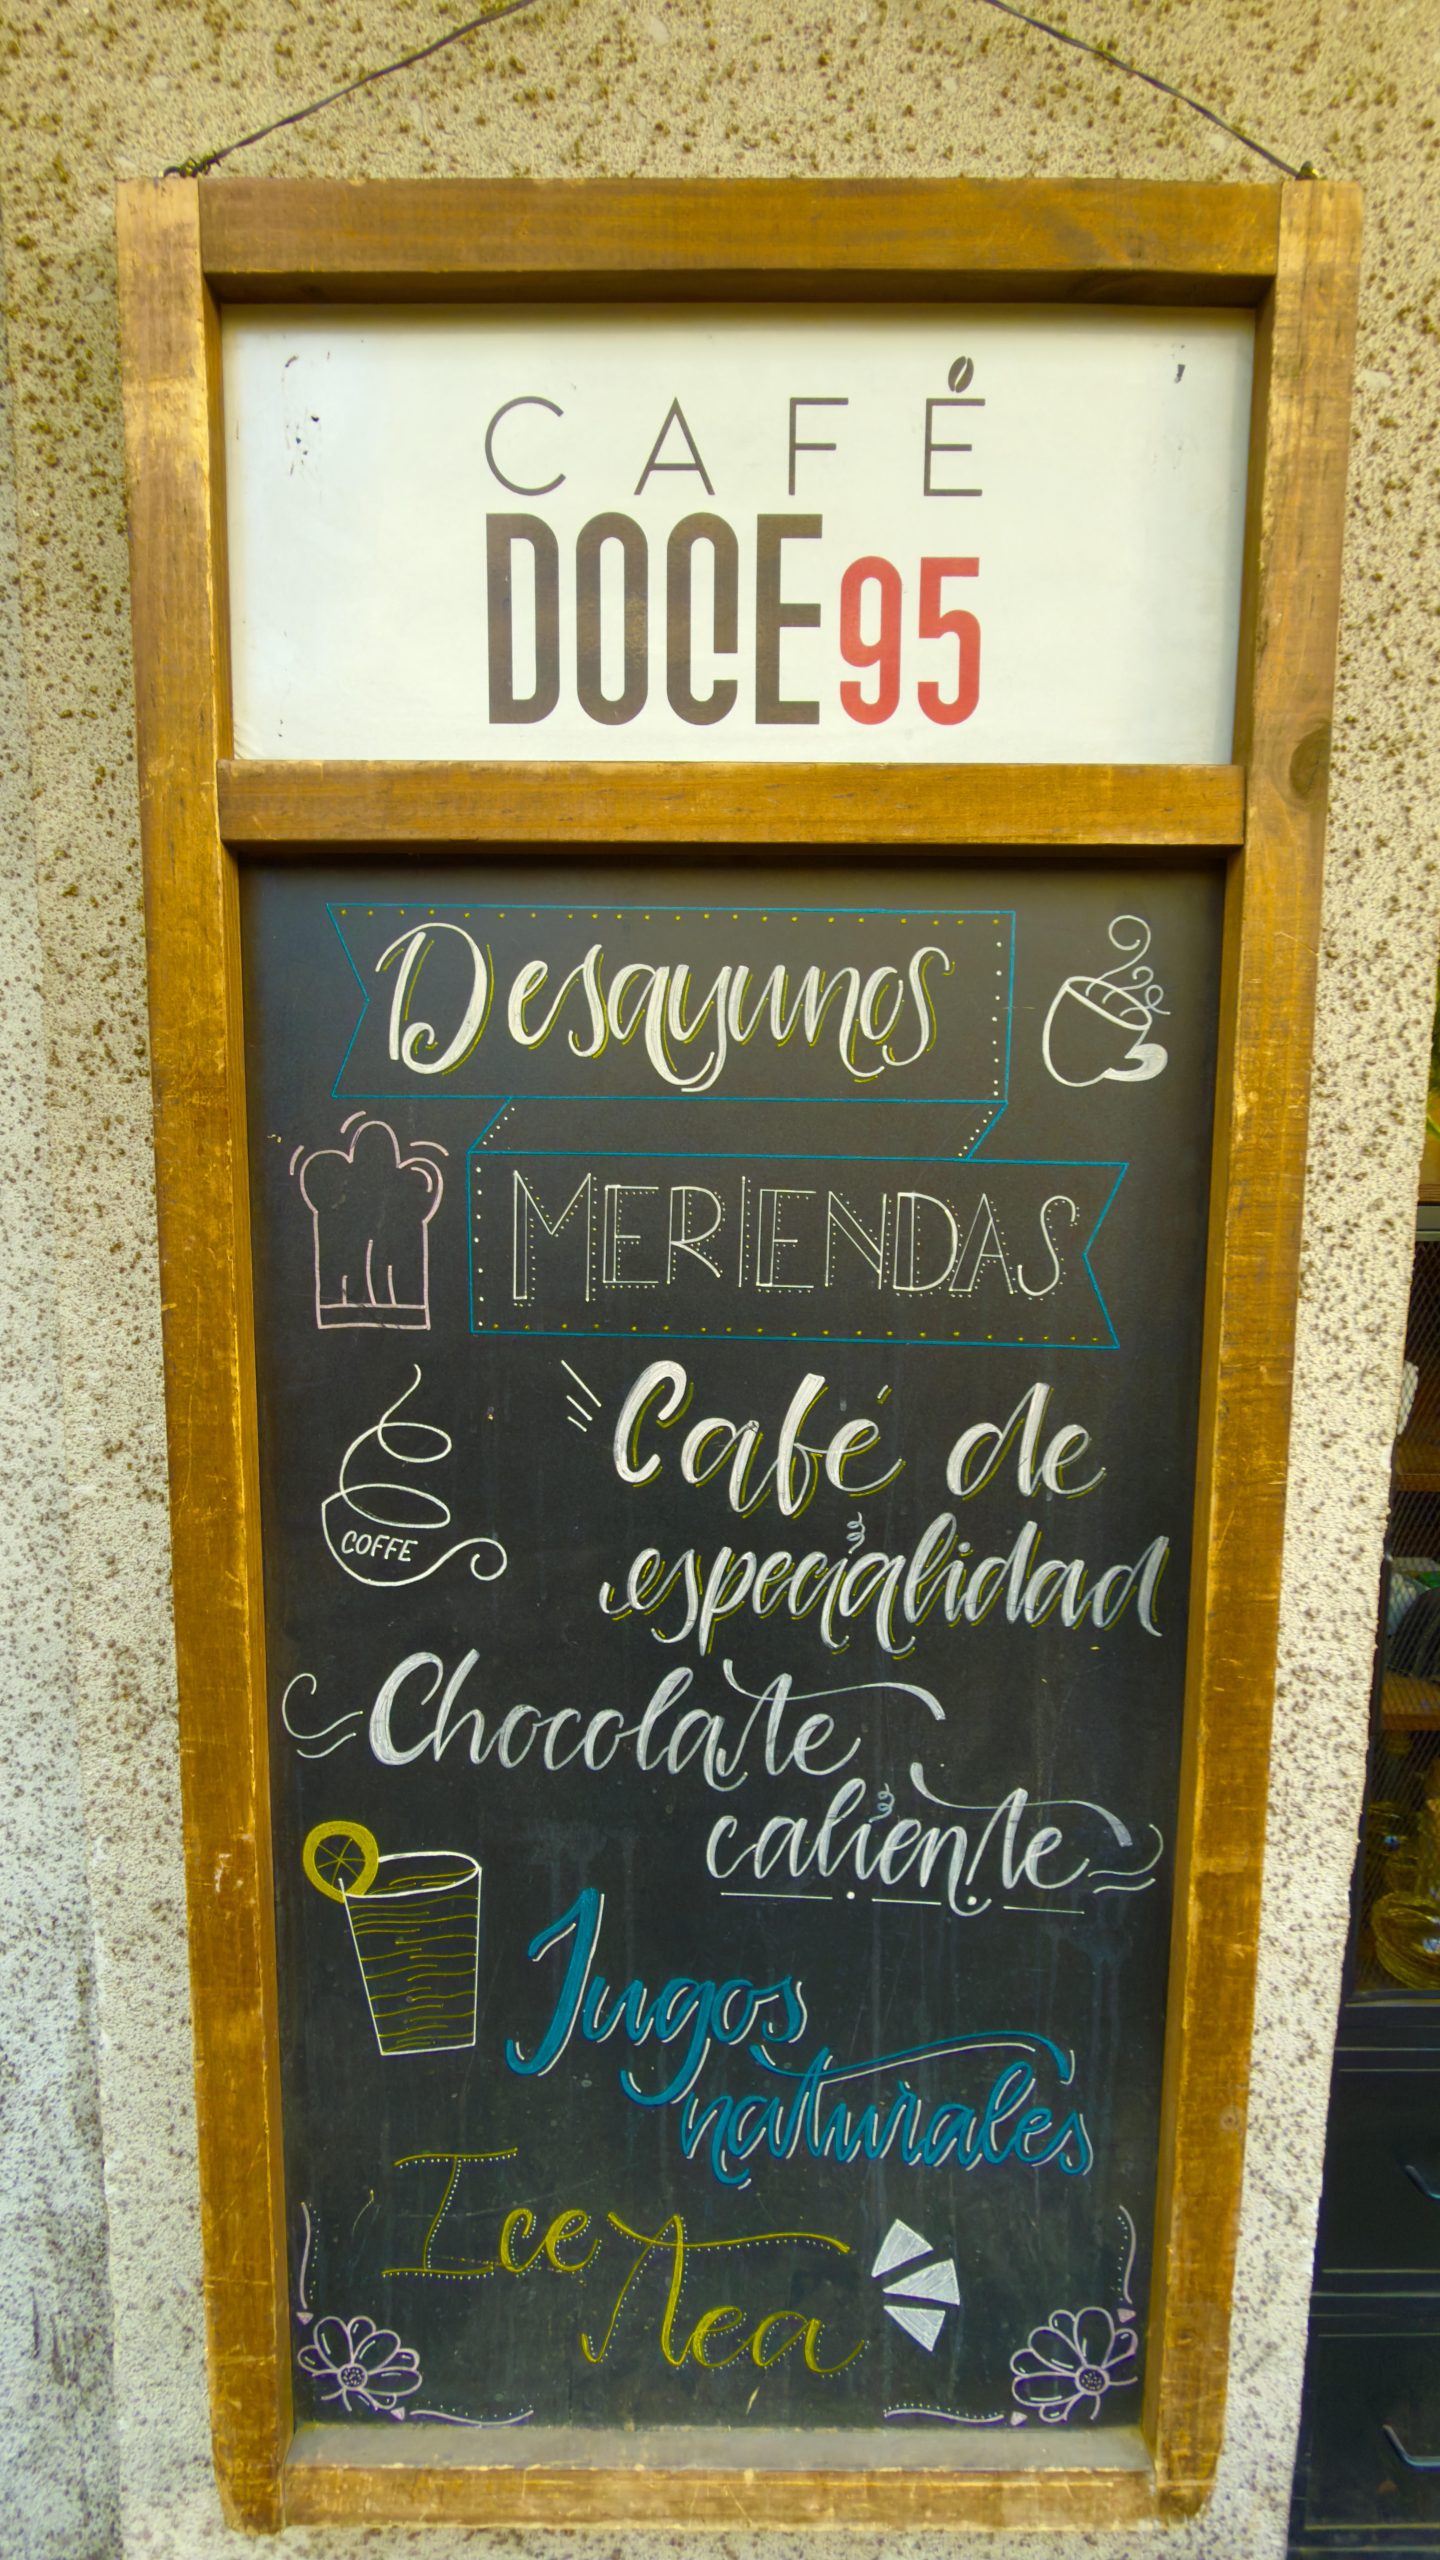 CAFÉ
DOCE95
Desayunos
MERIENDAS
Café de
COFFE
especialidad
Chocolate
caliente
Jugos
naturales
Ice Tea